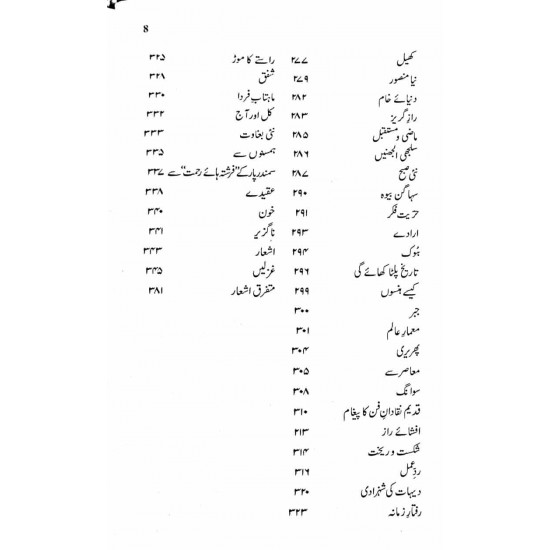 8
کھیل ۲۷۷
نیا منصور ۲۷۹
دنیائے خام ۲۸۲
رازِ گریز ۲۸۳
ماضی و مستقبل ۲۸۵
سلجھی الجھنیں ۲۸۶
نئی صبح ۲۸۷
سہاگن بیوہ ۲۹۰
حریتِ فکر ۲۹۱
ارادے ۲۹۳
ہُوک ۲۹۴
تاریخ پلٹا کھائے گی ۲۹۶
کیسے ہنسوں ۲۹۹
جبر ۳۰۰
معمارِ عالم ۳۰۱
پھریری ۳۰۴
معاصر سے ۳۰۵
سوانگ ۳۰۸
قدیم نقادانِ فن کا پیغام ۳۱۰
افشائے راز ۲۱۳
شکست و ریخت ۳۱۴
ردِ عمل ۳۱۶
دیہات کی شہزادی ۳۲۰
رفتارِ زمانہ ۳۲۳
راستے کا موڑ ۳۲۵
شفق ۳۲۸
ماہتابِ فردا ۳۳۰
کل اور آج ۳۳۲
نئی بغاوت ۳۳۳
ہمسفوں سے ۳۳۵
سمندر پار کے "فرشتہ ہائے رحمت" سے ۳۳۷
عقیدے ۳۳۸
خون ۳۴۰
ناگزیر ۳۴۱
اشعار ۳۴۳
غزلیں ۳۴۵
متفرق اشعار ۳۸۱